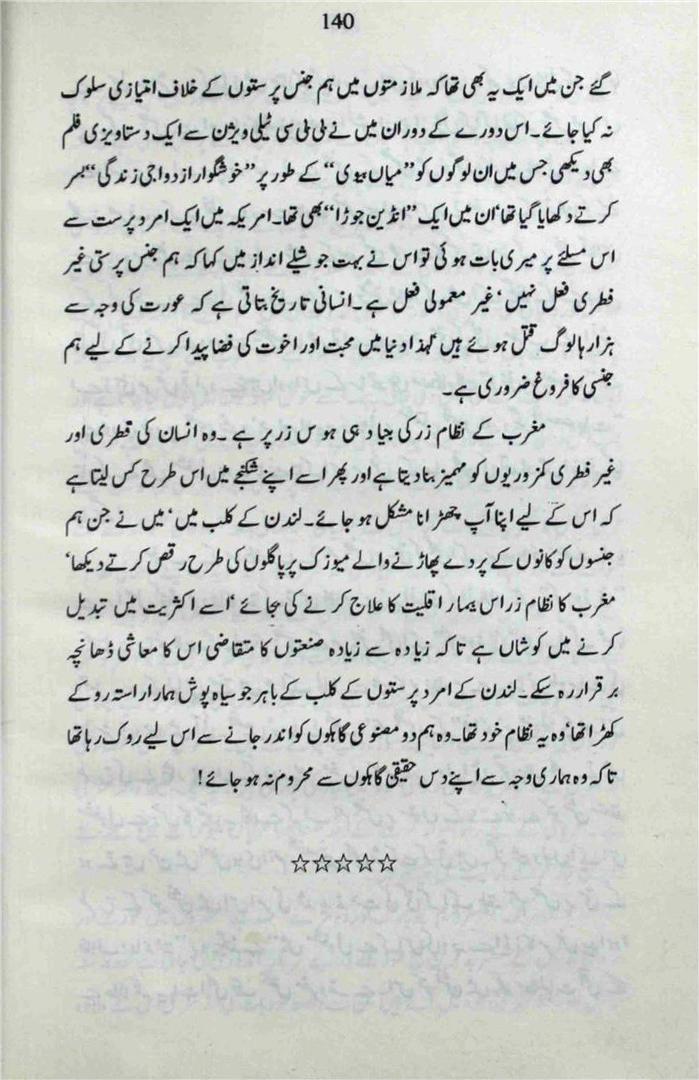 140
گئے جن میں ایک یہ بھی تھا کہ ملازمتوں میں ہم جنس پرستوں کے خلاف امتیازی سلوک
نہ کیا جائے۔ اس دورے کے دوران میں نے ٹی ٹی سی ٹیلی ویژن سے ایک دستاویزی فلم
بھی دیکھی جس میں ان لوگوں کو ”میاں بیوی“ کے طور پر ”خوشگوار ازدواجی زندگی“ بسر
کرتے دکھایا گیا تھا‘ ان میں ایک ”انڈین جوڑا“ بھی تھا۔ امریکہ میں ایک امرد پرست سے
اس مسئلے پر میری بات ہوئی تو اس نے بہت جوشیلے انداز میں کہا کہ ہم جنس پرستی غیر
فطری فعل نہیں‘ غیر معمولی فعل ہے۔ انسانی تاریخ بتاتی ہے کہ عورت کی وجہ سے
ہزارہا لوگ قتل ہوئے ہیں‘ لہٰذا دنیا میں محبت اور اخوت کی فضا پیدا کرنے کے لیے ہم
جنسی کا فروغ ضروری ہے۔
مغرب کے نظام زر کی بنیاد ہی ہوس زر پر ہے۔ وہ انسان کی فطری اور
غیر فطری کمزوریوں کو مہمیز بنا دیتا ہے اور پھر اسے اپنے شکنجے میں اس طرح کس لیتا ہے
کہ اس کے لیے اپنا آپ چھڑانا مشکل ہو جائے۔ لندن کے کلب میں‘ میں نے جن ہم
جنسوں کو کانوں کے پردے پھاڑنے والے میوزک پر پاگلوں کی طرح رقص کرتے دیکھا‘
مغرب کا نظام زر اس بیمار اقلیت کا علاج کرنے کی بجائے‘ اسے اکثریت میں تبدیل
کرنے میں کوشاں ہے تاکہ زیادہ سے زیادہ صنعتوں کا متقاضی اس کا معاشی ڈھانچہ
برقرار رہ سکے۔ لندن کے امرد پرستوں کے کلب کے باہر جو سیاہ پوش ہمارا راستہ روکے
کھڑا تھا‘ وہ یہ نظام خود تھا۔ وہ ہم دو مصنوعی گاہکوں کو اندر جانے سے اس لیے روک رہا تھا
تاکہ وہ ہماری وجہ سے اپنے دس حقیقی گاہکوں سے محروم نہ ہو جائے!
☆☆☆☆☆